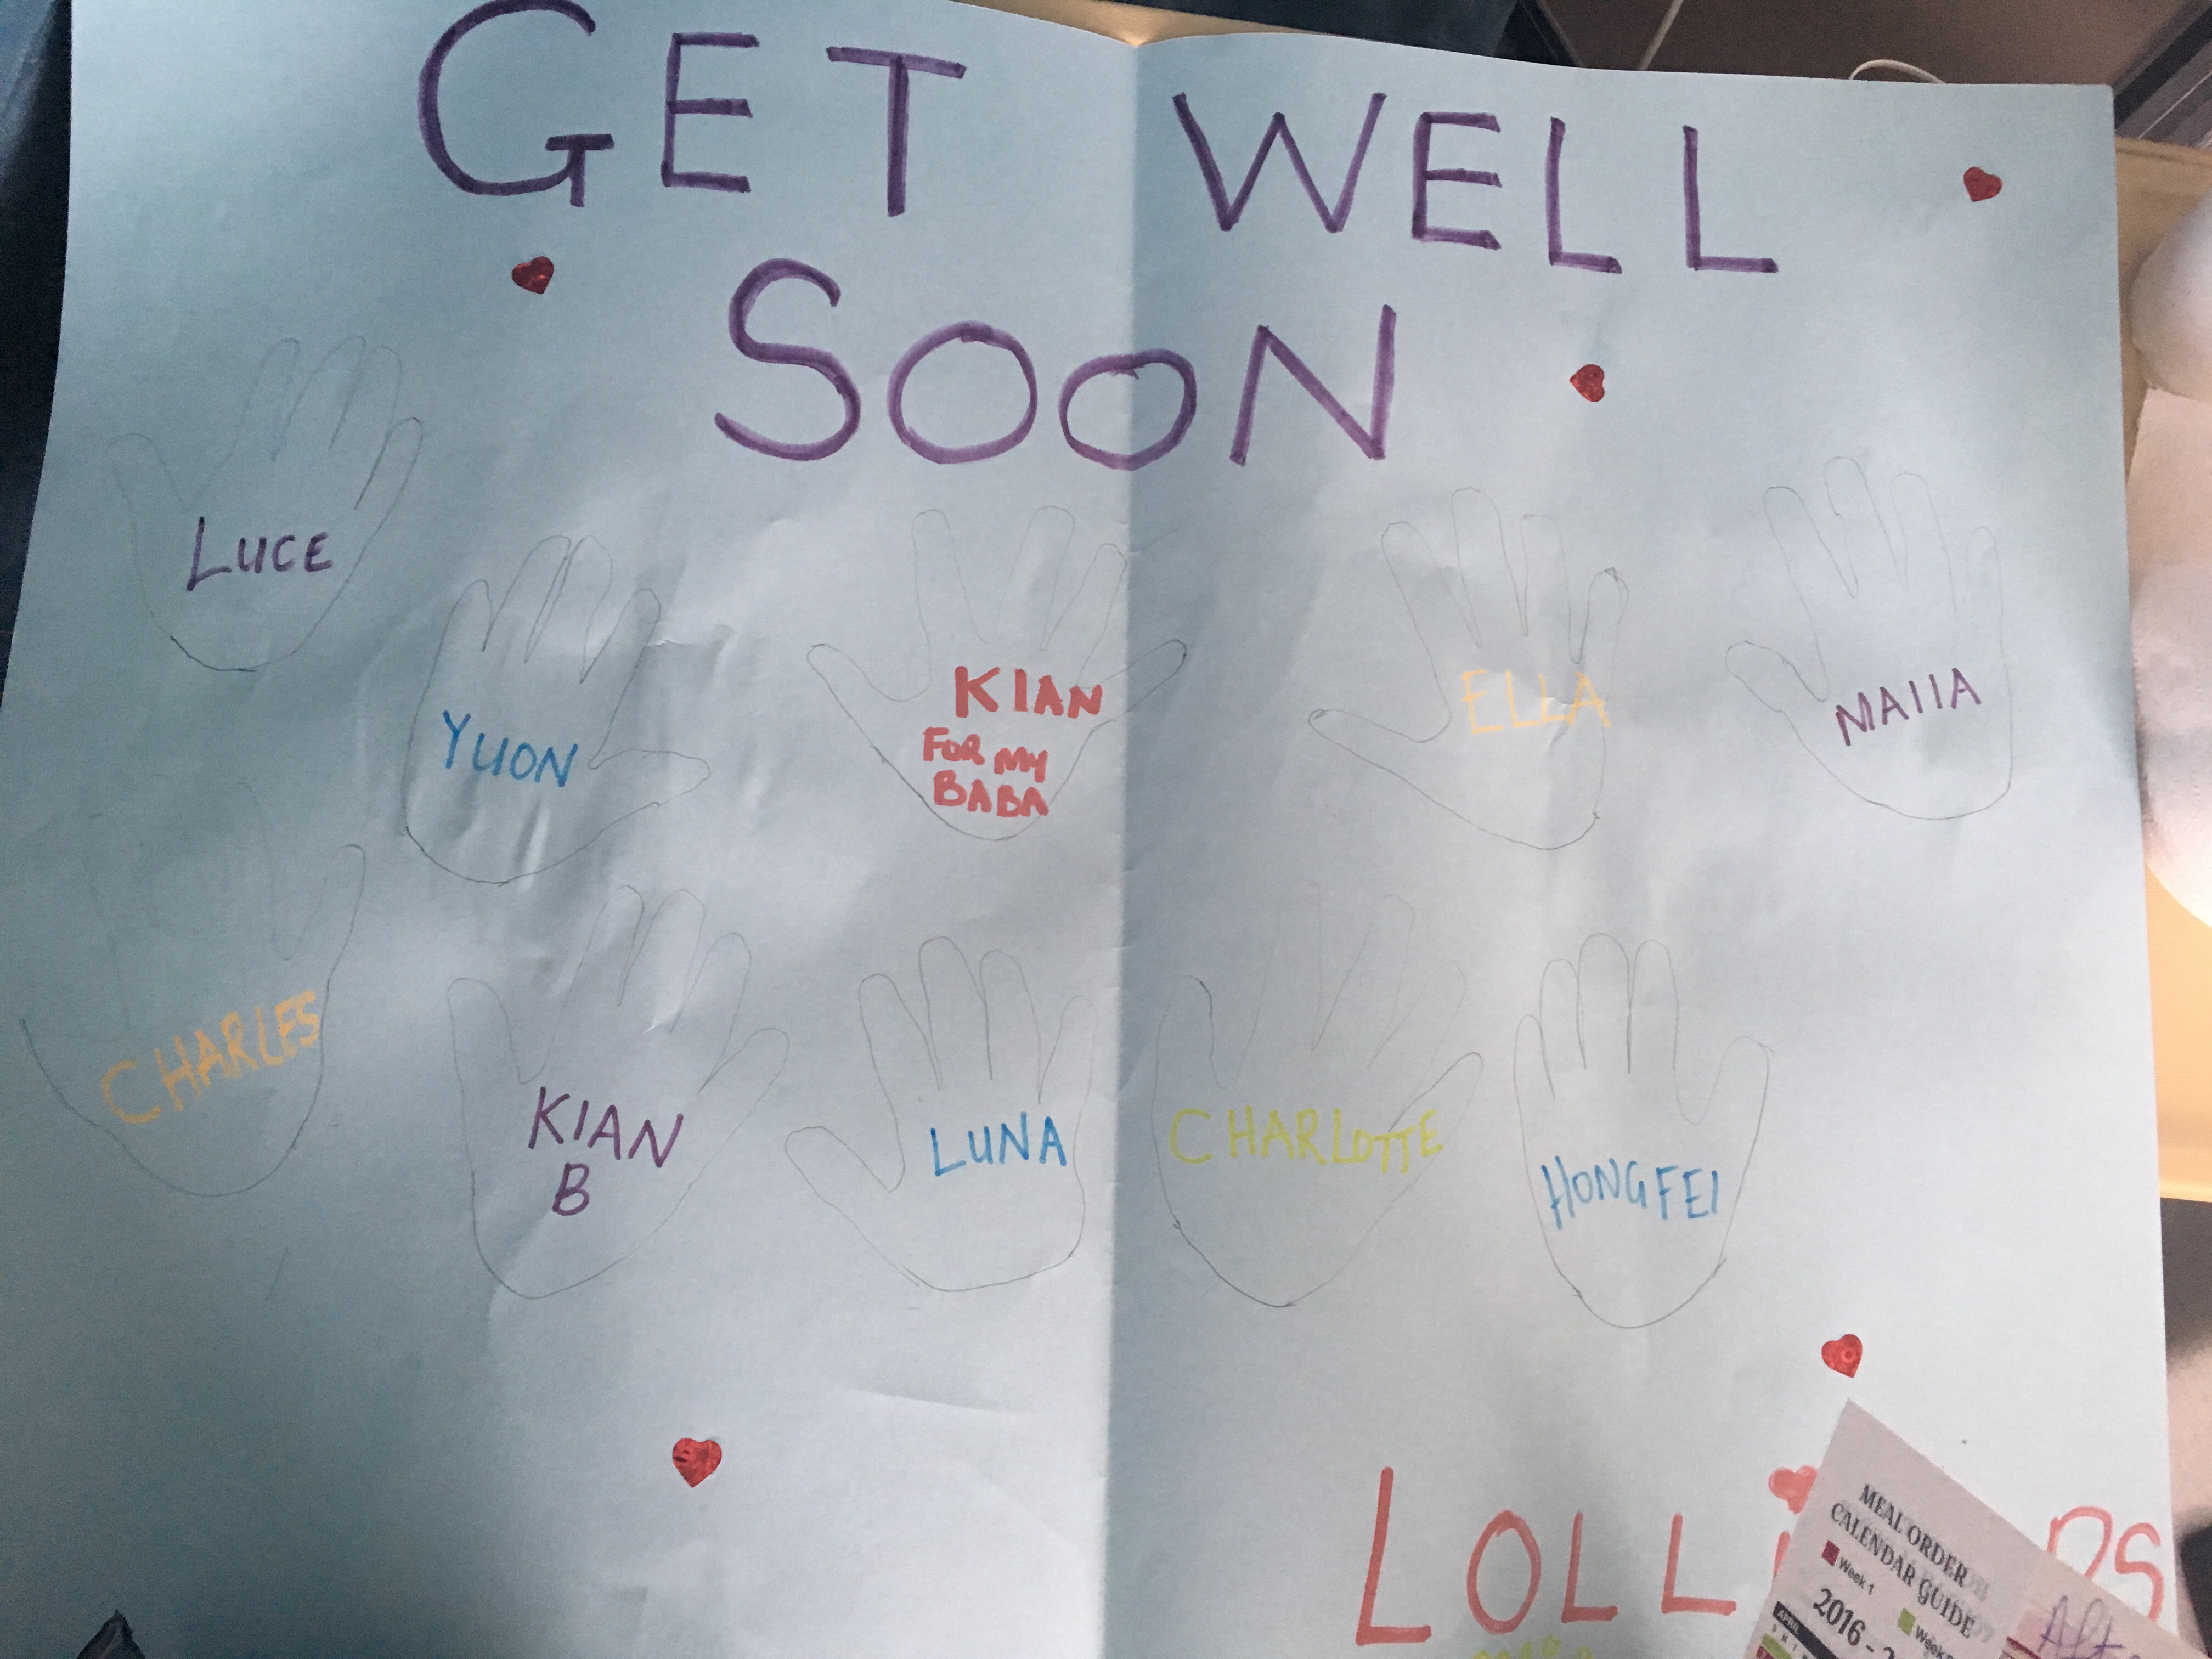 GET WELL
SOON
LUCE
YUON
KIAN
FOR MY
BABA
ELLA
MAIIA
CHARLES
KIAN
B
LUNA
CHARLOTTE
HONGFEI
MEAL ORDER
CALENDAR GUIDE
Week 1
2016 -
APRIL
S M T